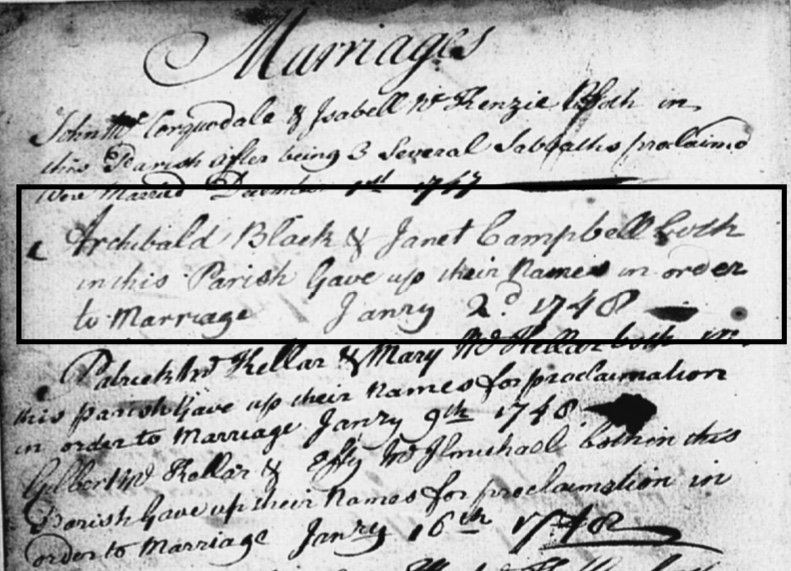 Marriages
John Mc Corquodale & Isabell Mc Kenzie Both in
this Parish after being 3 Several Sabbaths proclaimd
were Married December 1st 1747
Archibald Black & Janet Campbell both
in this Parish Gave up their Names in order
to Marriage Janry 2d 1748
Patrick Mc Kellar & Mary Mc Kellar both in
this parish Gave up their Names for proclamation
in order to Marriage Janry 9th 1748
Gilbert Mc Kellar & Effy Mc Ilmichael both in this
Parish Gave up their Names for proclamation in
order to Marriage Janry 16th 1748